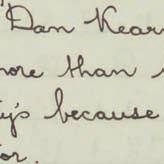 "Dan Kear
more than
y's because
for.